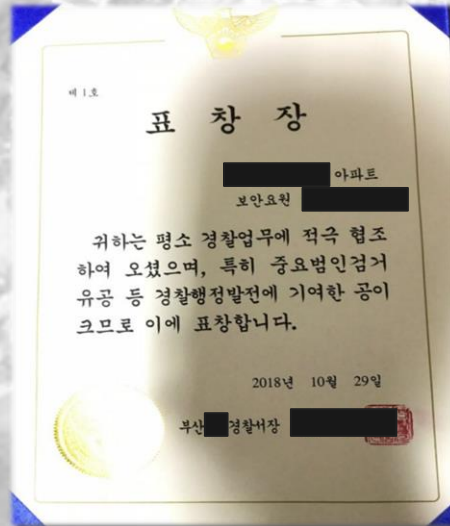 제 1 호
표 창 장
아파트
보안요원
귀하는 평소 경찰업무에 적극 협조
하여 오셨으며, 특히 중요범인검거
유공 등 경찰행정발전에 기여한 공이
크므로 이에 표창합니다.
2018년 10월 29일
부산 경찰서장